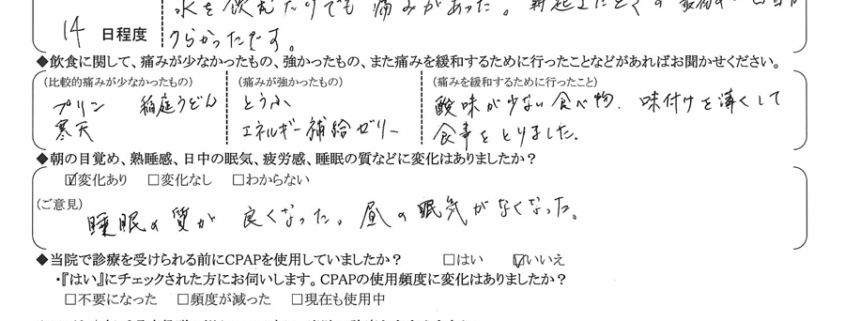 水を飲むだけでも痛みがあった。朝起きたときの
14 日程度
つらかったです。
◆飲食に関して、痛みが少なかったもの、強かったもの、また痛みを緩和するために行ったことなどがあればお聞かせください。
(比較的痛みが少なかったもの) (痛みが強かったもの) (痛みを緩和するために行ったこと)
プリン 稲庭うどん とうふ 酸味が少ない食べ物、味付けを薄くして
寒天 エネルギー補給ゼリー 食事をとりました。
◆朝の目覚め、熟睡感、日中の眠気、疲労感、睡眠の質などに変化はありましたか?
☑変化あり □変化なし □わからない
(ご意見) 睡眠の質が良くなった。昼の眠気がなくなった。
◆当院で診療を受けられる前にCPAPを使用していましたか? □はい ☑いいえ
・『はい』にチェックされた方にお伺いします。CPAPの使用頻度に変化はありましたか?
□不要になった □頻度が減った □現在も使用中